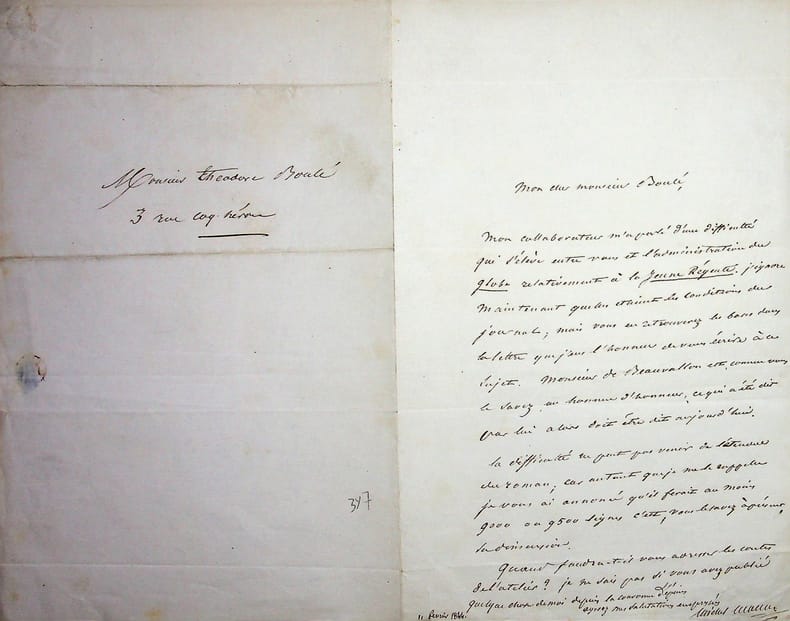 Monsieur theodore Boulé
3 rue coq-héron
347
Mon cher monsieur Boulé,
Mon collaborateur m'a parlé d'une difficulté
qui s'élève entre vous et l'administration du
globe relativement à la Jeune Régente. j'ignore
maintenant quelles étaient les conditions du
journal; mais vous en retrouverez les bases dans
la lettre que j'eus l'honneur de vous écrire à ce
sujet. Monsieur de Beauvallon est, comme vous
le savez, un homme d'honneur, ce qui a été dit
par lui alors doit être dit aujourd'hui.
la difficulté ne peut pas venir de l'étendue
du roman; car autant que je me le rappelle
je vous ai annoncé qu'il ferait au moins
9000 ou 9500 lignes c'est, vous le savez à présent,
sa dimension.
Quand faudra-t-il vous adresser les contes
de l'atelier? je ne sais pas si vous avez publié
quelque chose de moi depuis la couronne d'épines
agréez mes salutations empressées
Michel Masson
11 février 1844.